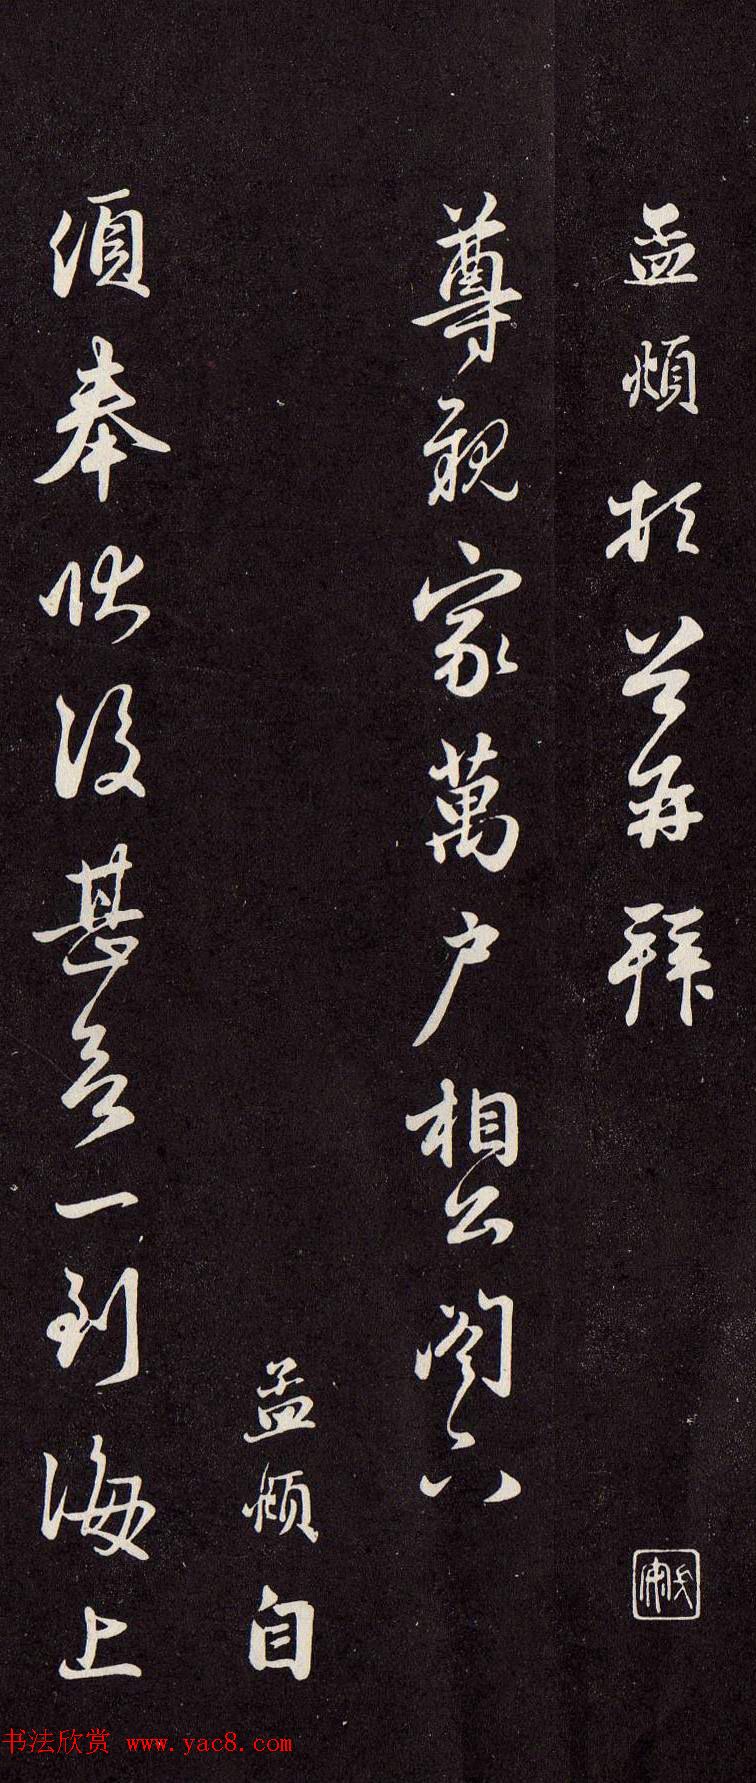 孟頫頓首再拜
尊親家萬戶相公閣下
孟頫自
頃奉狀後甚欲一到海上
书法欣赏 www.yac8.com